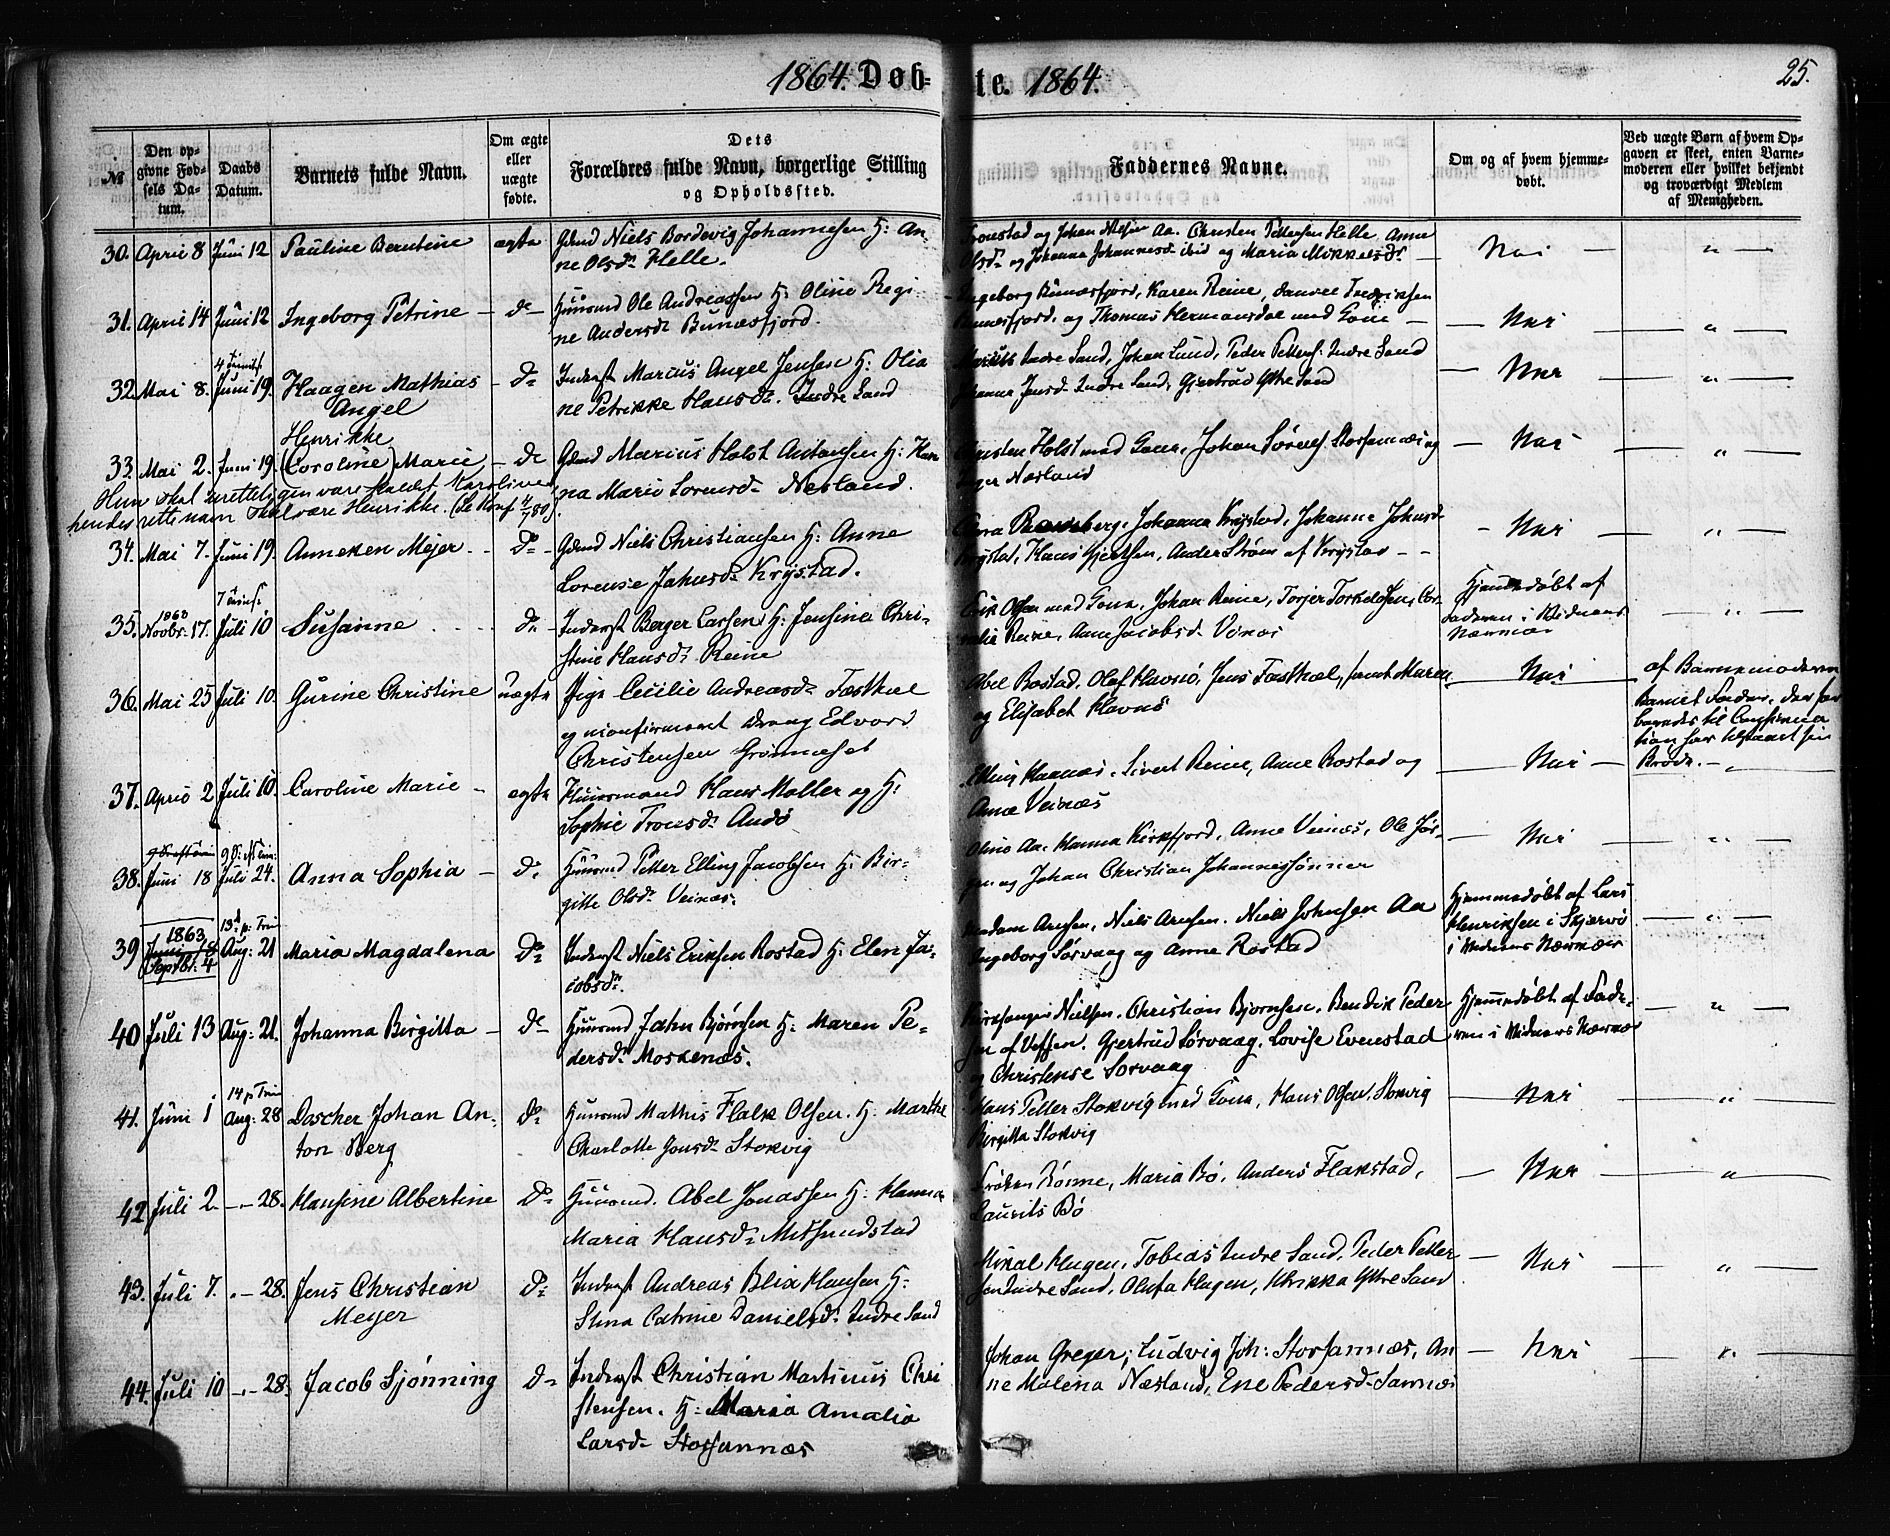 1864. Døb-
te. 1864.
25.
№
Den op-
givne Fød-
sels Da-
tum.
Daabs
Datum.
Barnets fulde Navn.
Om ægte
eller
uægte
fødte.
Dets
Forældres fulde Navn, borgerlige Stilling
og Opholdssted.
Faddernes Navne.
Om og af hvem hjemme-
døbt.
Ved uægte Børn af hvem Op-
gaven er skeet, enten Barne-
moderen eller hvilket bekjendt
og troværdigt Medlem
af Menigheden.
30. April 8 Juni 12 Pauline Berntine ægte Gdmd Niels Bordevig Johannesen H: An-
ne Olsd. Helle.
og Johan Aa. Christen Pettersen Helle Anne
Olsd. og Johanna Johannesd. ibid og Maria Mikkelsd.
Nei "
31. April 14 Juni 12 Ingeborg Petrine — do — Huusmd Ole Andreassen H: Oline Regi-
ne Andersd. Bunæsfjord.
Ingeborg Bunæsfjord, Karen Reine, Daniel Fredriksen
Bunæsfjord, og Thomas Hermansdal med Kone —
— Nei — "
32. Mai 8. Juni 19. Haagen Mathias
Angel
— do — Inderst Marcus Angel Jensen H: Olia
ne Petrikke Hansd. Indre Sand
Indre Sand, Johan Lund, Peder Petters. Indre Sand
Jensd. Indre Sand, Gjertrud Yttre Sand
— Nei — "
33. Mai 2. Juni 19. Henrikke
(Caroline) Marie
— do Gdmd Marius Holst Antonsen H: Han
na Marie Sorensd. Nesland.
Christen Holst med Kone, Johan Sørens. Storsannæs og
Næsland
— Nei — "
Hun skal urettelig være kaldet Karoline,
hendes rette navn skal være Henrikke. (Se Konf. 4/7 80).
34. Mai 7. Juni 19. Anneken Mejer — do — Gdmd Niels Christiansen H: Anne
Lorense Johnsd. Krystad.
Johanna Krystad, Johanne Johnsd.
Krystad, Hans Gjertsen, Ander Strøm af Krystad —
— Nei — "
35. 1863 Novbr. 17. Juli 10 Susanne do — Inderst Berger Larsen H: Jensine Chri-
stine Hansd. Reine
Erik Olsen med Kone, Johan Reine, Torjer Torkelsen, Cor-
nelia Reine, Anne Jacobsd. Vinæs
Hjemmedøbt af
Faderen i Vidners
Nærvær
"
36. Mai 25 Juli 10. Gurine Christine uægte Pige Cecilie Andreasd. Fæsthæl
og ukonfirmeret Dreng Edvard
Christensen
Abel Rostad, Olaf Havnø, Jens Fæsthæl, samt Maren
og Elisabet Havnø
— Nei —
af Barnemoderen
37. April 2 Juli 10. Caroline Marie — ægte Huusmand Hans Møller og H:
Sophie Tronsd. Andø
Elling Havnæs, Sivert Reine, Anne Rostad og
Anne Veinæs
— Nei — "
38. Juni 18 Juli 24. Anna Sophia — do. Huusmd Petter Elling Jacobsen H: Bir-
gitte Olsd. Veinæs.
Oline Aa. Hanna Kirkfjord, Anne Veinæs, Ole Jør-
gen og Johan Christian Johannessønner
— Nei "
39 1863 Septbr. 4 Aug: 21 Maria Magdalena do Inderst Niels Eriksen Rostad H: Elen Ja-
cobsd.
Madam Arnsen, Niels Arnsen. Niels Johnsen Aa
Ingeborg Sørvaag og Anne Rostad
Hjemmedøbt af Lars
Henriksen i Skjærvø
i Vidners Nærvær
"
40 Juli 13 Aug: 21. Johanna Birgitta — do — Huusmd Jahn Bjørnsen H: Maren Pe-
dersd. Moskenæs.
Kirkesanger Nielsen. Christian Bjornsen. Bendik Peder
sen af Vefsen. Gjertrud Sørvaag. Lovise Evenstad
og Christense Sorvaag
Hjemmedøbt af Fade-
ren i Vidners Nærvær
"
41. Juni 1 14 p Trin
Aug: 28 Daschker Johan An-
ton Berg
do Huusmd Mathis Flakk Olsen. H: Marthe
Charlotte Jonsd. Stokvig
Hans Petter Stokvig med Kone, Hans Olsen Stokvig
Birgitta Stokvig
— Nei — "
42. Juli 2. — " — 28. Hansine Albertine do Huusmd. Abel Jonassen H: Hanna
Maria Hansd. Midsundstad
Frøken Rønne, Maria Bø, Anders Flakstad,
Laurits Bø
— Nei — "
43. Juli 7. " — 28. Jens Christian
Meyer
do Inderst Andreas Blix Hansen H:
Stina Catrine Danielsd. Indre Sand
Mikal Hagen, Tobias Indre Sand, Peder Petter
sen Indre Sand, Olufa Hagen, Ulrikka Yttre Sand
— Nei — "
44. Juli 10 — " — 28. Jacob Sjønning do Inderst Christian Martinus Chri
stensen. H: Maria Amalia
Larsd. Storsannæs
Johan Greger, Ludvig Joh: Storsannæs, An
ne Malena Næsland, Ene Pedersd. Sannæs
— Nei — "